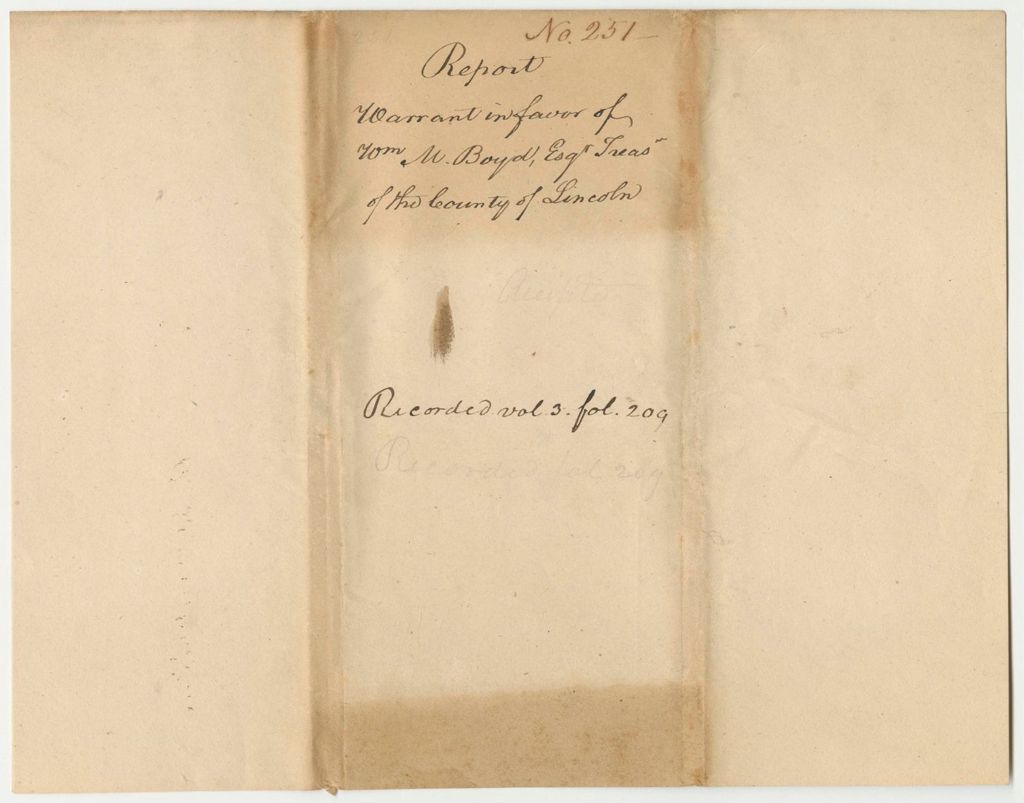 No. 251
Report
Warrant in favor of
Wm M. Boyd, Esqr Treasr
of the County of Lincoln
Recorded vol 3. fol. 209
Recorded fol 209